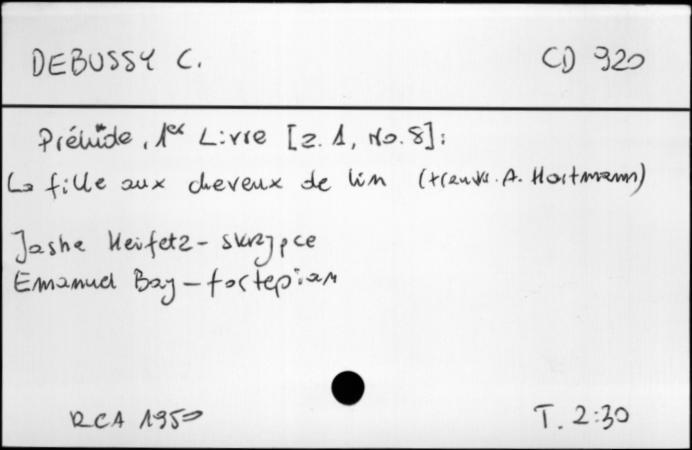 DEBUSSY C. CD 920
Prélude, 1er Livre [z. 1, No. 8]:
La fille aux cheveux de lin (transkr. A. Hartmann)
Jasha Heifetz - skrzypce
Emanuel Bay - fortepian
RCA 1950 T. 2:30